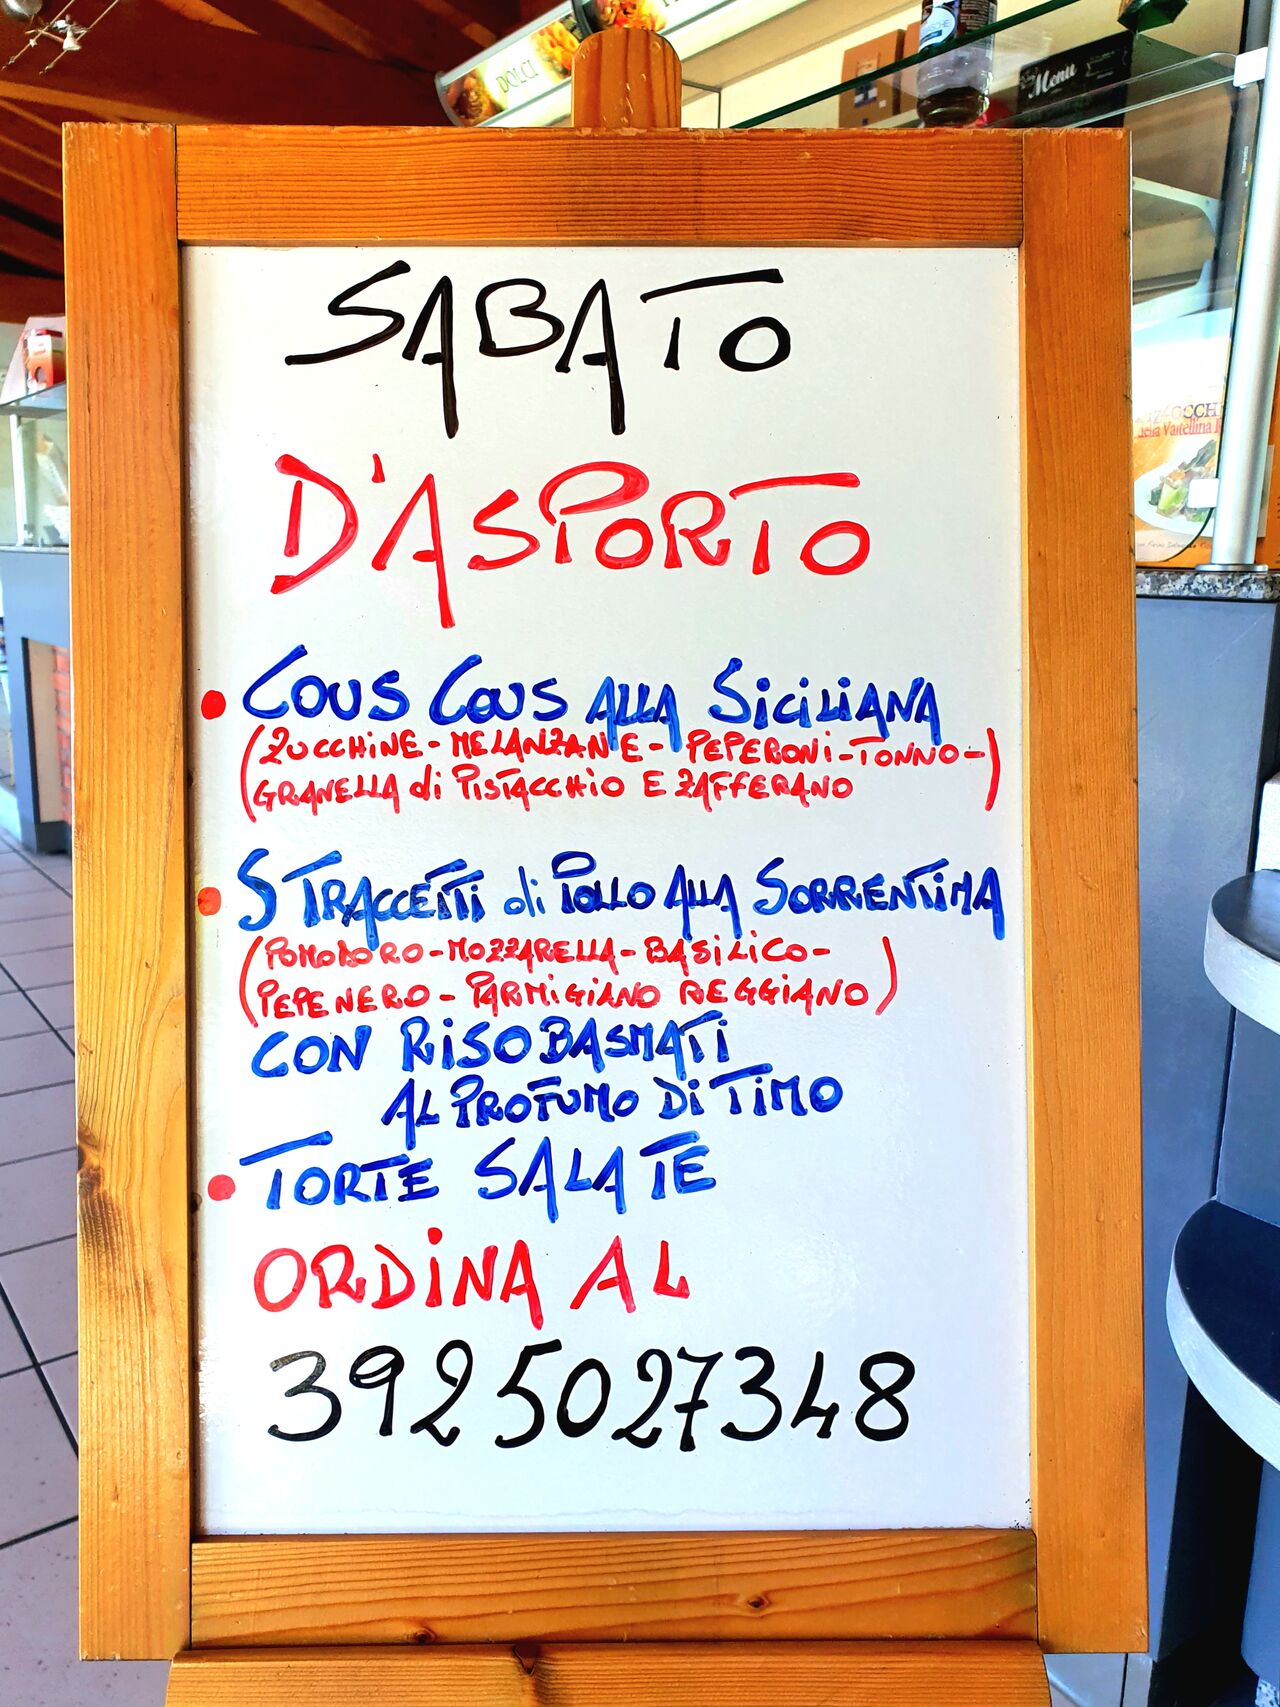 DOLCI
Menu
SABATO
D'ASPORTO
COUS COUS ALLA SiCiLiANA
(ZUCCHINE - MELANZANE - PEPERONi - TONNO -
GRANELLA di PISTACCHIO E ZAFFERANO)
STRACCETTi di POLLO ALLA SORRENTINA
(POMODORO - MOZZARELLA - BASiLiCO -
PEPE NERO - PARMiGIANO REGGIANO)
CON RISO BASMATi
AL PROFUMO Di TiMO
TORTE SALATE
ORDiNA AL
3925027348
della Valtellina